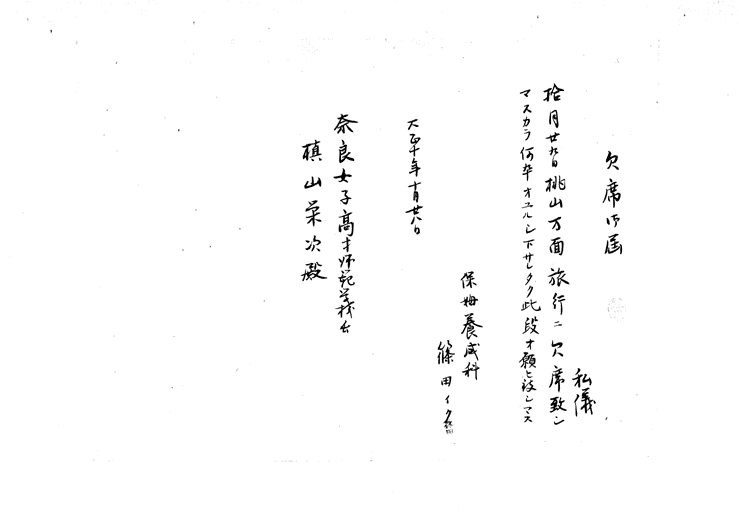 欠席御届
私儀
拾月廿九日桃山方面旅行ニ欠席致シ
マスカラ何卒オユルシ下サレタク此段オ願ヒ致シマス
保姆養成科
篠田イク
大正十年十月廿八日
奈良女子高才師範学校長
槙山栄次殿